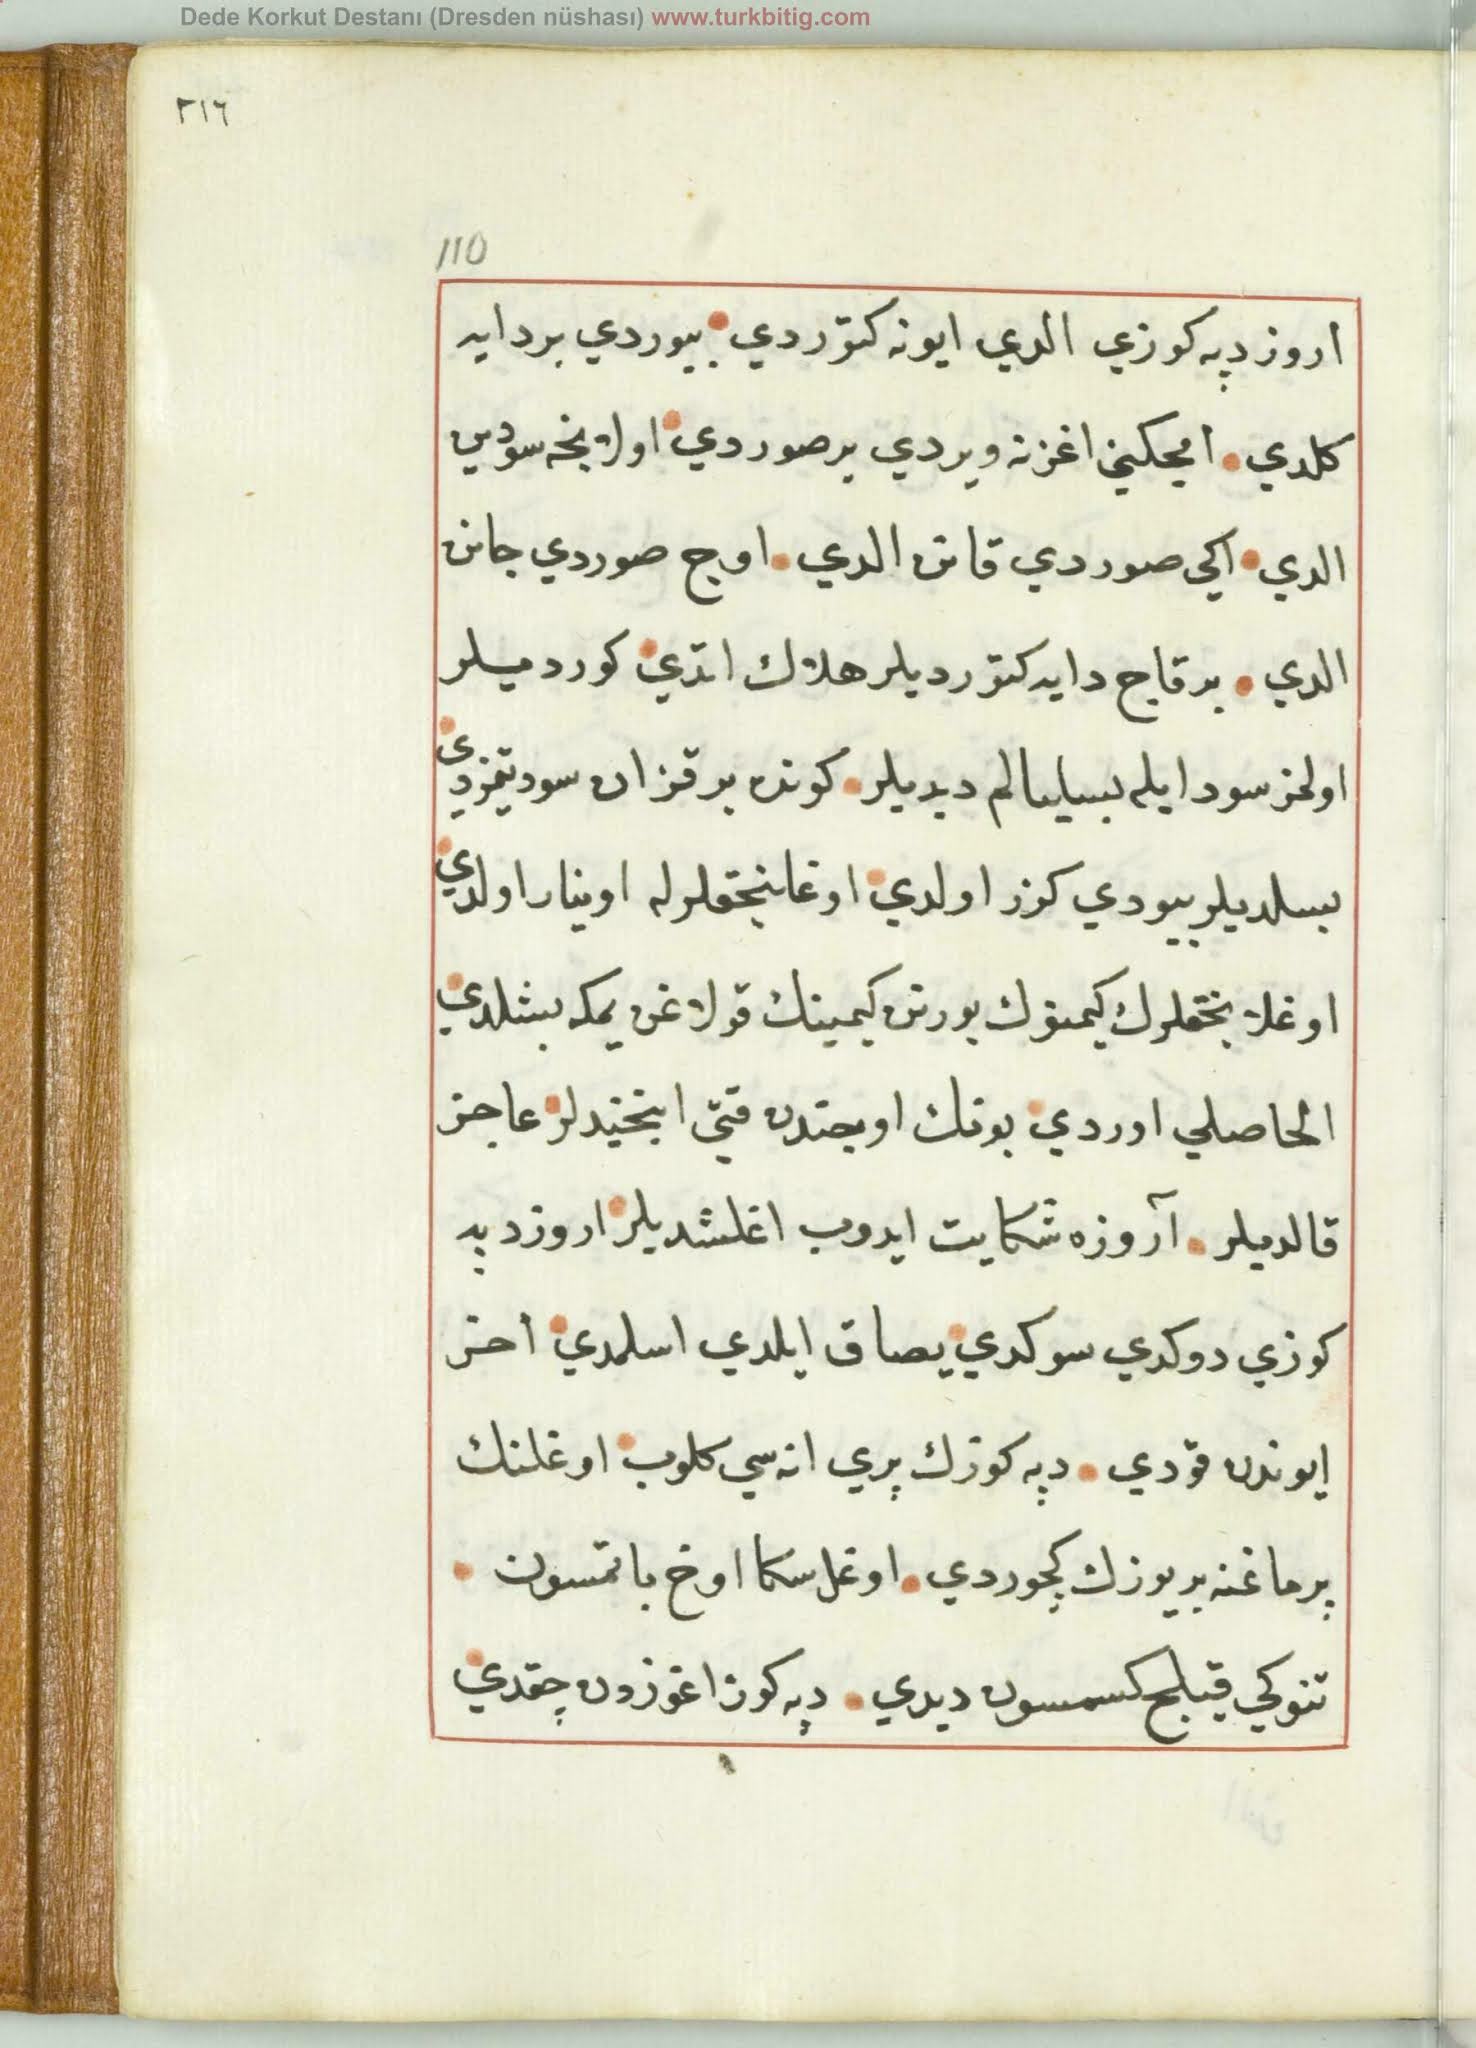 Dede Korkut Destanı (Dresden nüshası) www.turkbitig.com
٢١٦
110
اروز دپه كوزي الدي ايونه كتوردي بيوردي بر دايه
كلدي امجكيني اغزنه ويردي بر صوردي اولانجه سودين
الدي اكي صوردي قانن الدي اوج صوردي جانن
الدي بر قاج دايه كتورديلر هلاك اتدي كورديلر
اولمز سود ايله بسليالم ديديلر كونده بر قزان سود يتمزدي
بسلديلر بيودي كزر اولدي اوغلانجقلرله اوينار اولدي
اوغلانجقلرك كيمنوك بورنن كيمينك قولاغن يمكه بشلدي
الحاصلي اوردي بونك اوجندن قتي انجنديلر عاجز
قالديلر آروزه شكايت ايدوب اغلشديلر اروز دپه
كوزي دوكدي سوكدي يصاق ايلدي اسلمدي اخر
ايوندن قودي دپه كوزك پري انه سي كلوب اوغلنك
پرماغنه بر يوزك كچوردي اوغل سكا اوخ باتمسون
تنوكي قيلج كسمسون ديدي دپه كوز اغوزدن چقدي